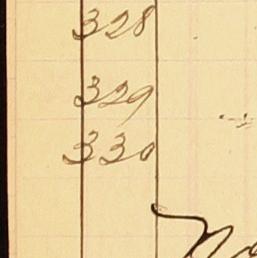 328
329
330